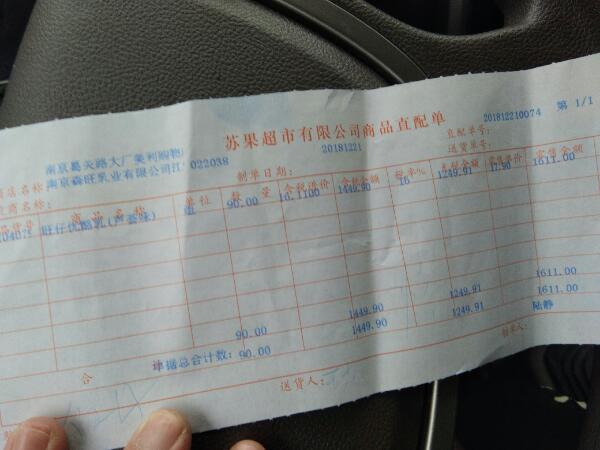 苏果超市有限公司商品直配单
南京葛关路大厂美利购物
022038
制单日期：
20181221
直配单号：
201812210074
第 1/1
店名称
南京森旺乳业有限公司江
商名称：
送货单号：
品货号 商品名称 单位 数量 含税进价 含税金额 税率% 零售单价 零售金额
旺仔优酪乳(芦荟味) 90.00 16.1100 1449.90 16 1249.91 17.90 1611.00
90.00 1449.90 1249.91 1611.00
单据总合计数：90.00 1449.90 1249.91 1611.00
合
送货人：
制单人：
陆静